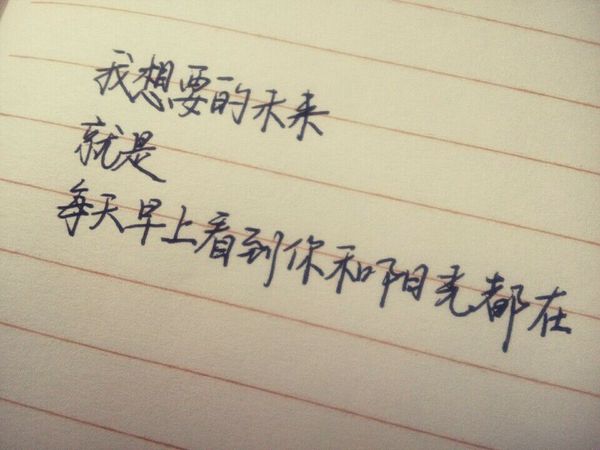 我想要的未来
就是
每天早上看到你和阳光都在